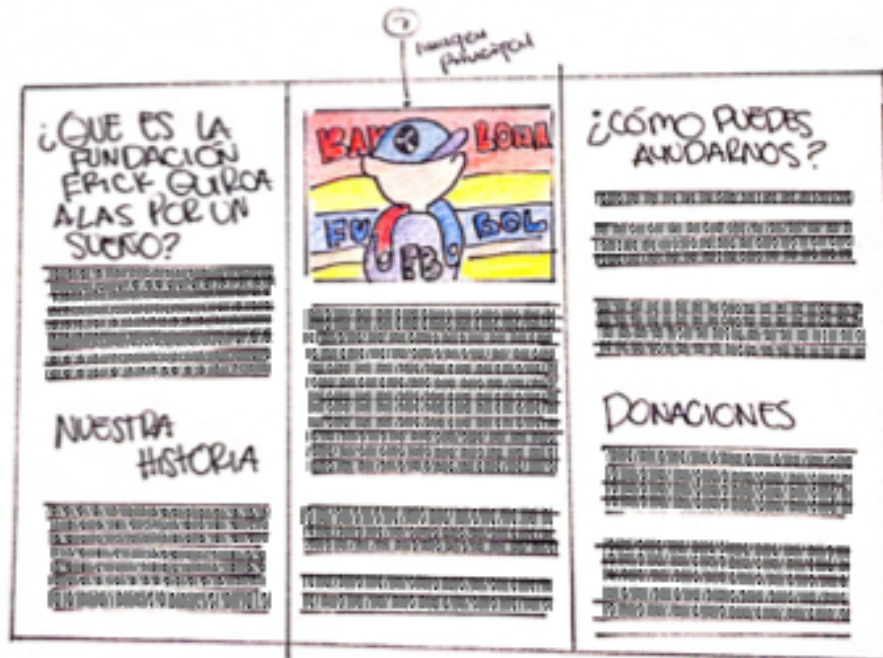 imagen
principal
¿QUE ES LA
FUNDACIÓN
ERICK QUIROA
ALAS POR UN
SUEÑO?
NUESTRA
HISTORIA
LONA
FUTBOL
FB
¿CÓMO PUEDES
AYUDARNOS?
DONACIONES